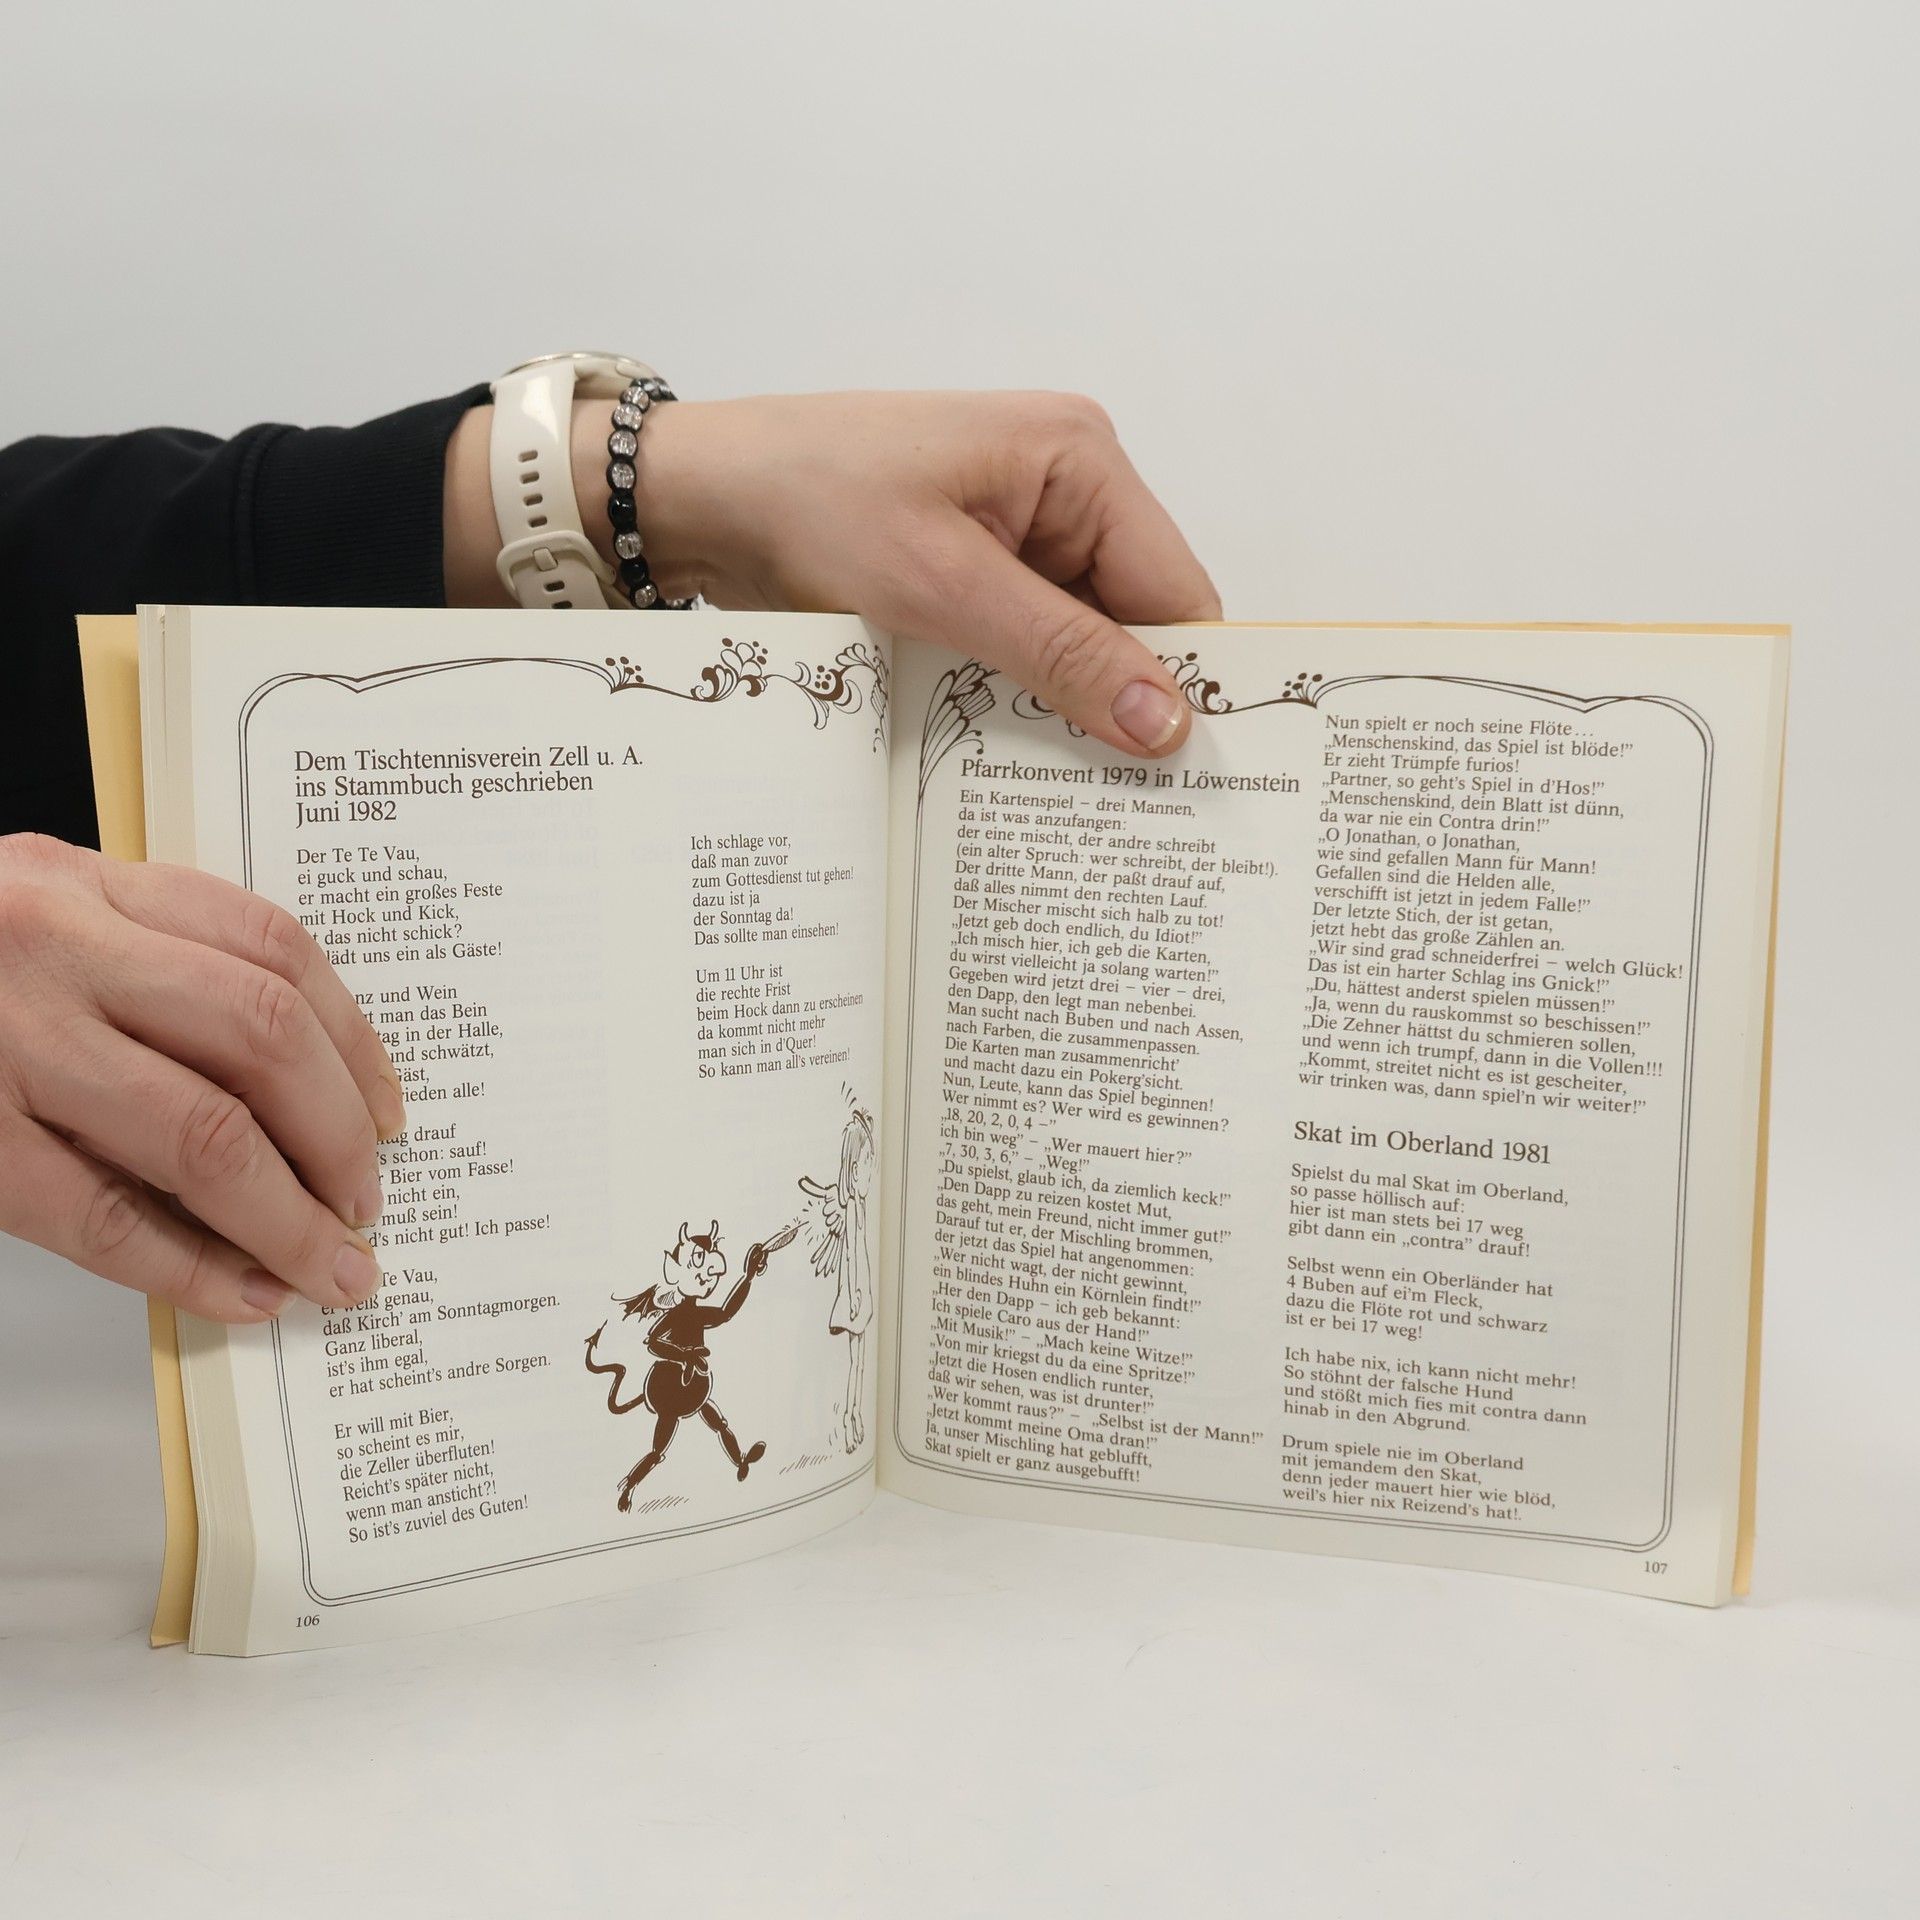 Dem Tischtennisverein Zell u. A.
ins Stammbuch geschrieben
Juni 1982
Der Te Te Vau,
ei guck und schau,
er macht ein großes Feste
mit Hock und Kick,
das nicht schick?
lädt uns ein als Gäste!
und Wein
man das Bein
in der Halle,
und schwätzt,
Gäst,
alle!
drauf
schon: sauf!
Bier vom Fasse!
nicht ein,
muß sein!
nicht gut! Ich passe!
Te Vau,
er weiß genau,
daß Kirch' am Sonntagmorgen.
Ganz liberal,
ist's ihm egal,
er hat scheint's andre Sorgen.
Er will mit Bier,
so scheint es mir,
die Zeller überfluten!
Reicht's später nicht,
wenn man ansticht?!
So ist's zuviel des Guten!
Ich schlage vor,
daß man zuvor
zum Gottesdienst tut gehen!
dazu ist ja
der Sonntag da!
Das sollte man einsehen!
Um 11 Uhr ist
die rechte Frist
beim Hock dann zu erscheinen
da kommt nicht mehr
man sich in d'Quer!
So kann man all's vereinen!
106
Pfarrkonvent 1979 in Löwenstein
Ein Kartenspiel – drei Mannen,
da ist was anzufangen:
der eine mischt, der andre schreibt
(ein alter Spruch: wer schreibt, der bleibt!).
Der dritte Mann, der paßt drauf auf,
daß alles nimmt den rechten Lauf.
Der Mischer mischt sich halb zu tot!
„Jetzt geb doch endlich, du Idiot!”
„Ich misch hier, ich geb die Karten,
du wirst vielleicht ja solang warten!”
Gegeben wird jetzt drei – vier – drei,
den Dapp, den legt man nebenbei.
Man sucht nach Buben und nach Assen,
nach Farben, die zusammenpassen.
Die Karten man zusammenricht'
und macht dazu ein Pokerg'sicht.
Nun, Leute, kann das Spiel beginnen!
Wer nimmt es? Wer wird es gewinnen?
„18, 20, 2, 0, 4 –”
ich bin weg” – „Wer mauert hier?”
„7, 30, 3, 6,” – „Weg!”
„Du spielst, glaub ich, da ziemlich keck!”
„Den Dapp zu reizen kostet Mut,
das geht, mein Freund, nicht immer gut!”
Darauf tut er, der Mischling brommen,
der jetzt das Spiel hat angenommen:
„Wer nicht wagt, der nicht gewinnt,
ein blindes Huhn ein Körnlein findt!”
„Her den Dapp – ich geb bekannt:
Ich spiele Caro aus der Hand!”
„Mit Musik!” – „Mach keine Witze!”
„Von mir kriegst du da eine Spritze!”
„Jetzt die Hosen endlich runter,
daß wir sehen, was ist drunter!”
„Wer kommt raus?” – „Selbst ist der Mann!”
„Jetzt kommt meine Oma dran!”
Ja, unser Mischling hat geblufft,
Skat spielt er ganz ausgebufft!
Nun spielt er noch seine Flöte...
„Menschenskind, das Spiel ist blöde!”
Er zieht Trümpfe furios!
„Partner, so geht's Spiel in d'Hos!”
„Menschenskind, dein Blatt ist dünn,
da war nie ein Contra drin!”
„O Jonathan, o Jonathan,
wie sind gefallen Mann für Mann!
Gefallen sind die Helden alle,
verschifft ist jetzt in jedem Falle!”
Der letzte Stich, der ist getan,
jetzt hebt das große Zählen an.
„Wir sind grad schneiderfrei – welch Glück!
Das ist ein harter Schlag ins Gnick!”
„Du, hättest anderst spielen müssen!”
„Ja, wenn du rauskommst so beschissen!”
„Die Zehner hättst du schmieren sollen,
und wenn ich trumpf, dann in die Vollen!!!
„Kommt, streitet nicht es ist gescheiter,
wir trinken was, dann spiel'n wir weiter!”
Skat im Oberland 1981
Spielst du mal Skat im Oberland,
so passe höllisch auf:
hier ist man stets bei 17 weg
gibt dann ein „contra” drauf!
Selbst wenn ein Oberländer hat
4 Buben auf ei'm Fleck,
dazu die Flöte rot und schwarz
ist er bei 17 weg!
Ich habe nix, ich kann nicht mehr!
So stöhnt der falsche Hund
und stößt mich fies mit contra dann
hinab in den Abgrund.
Drum spiele nie im Oberland
mit jemandem den Skat,
denn jeder mauert hier wie blöd,
weil's hier nix Reizend's hat!.
107